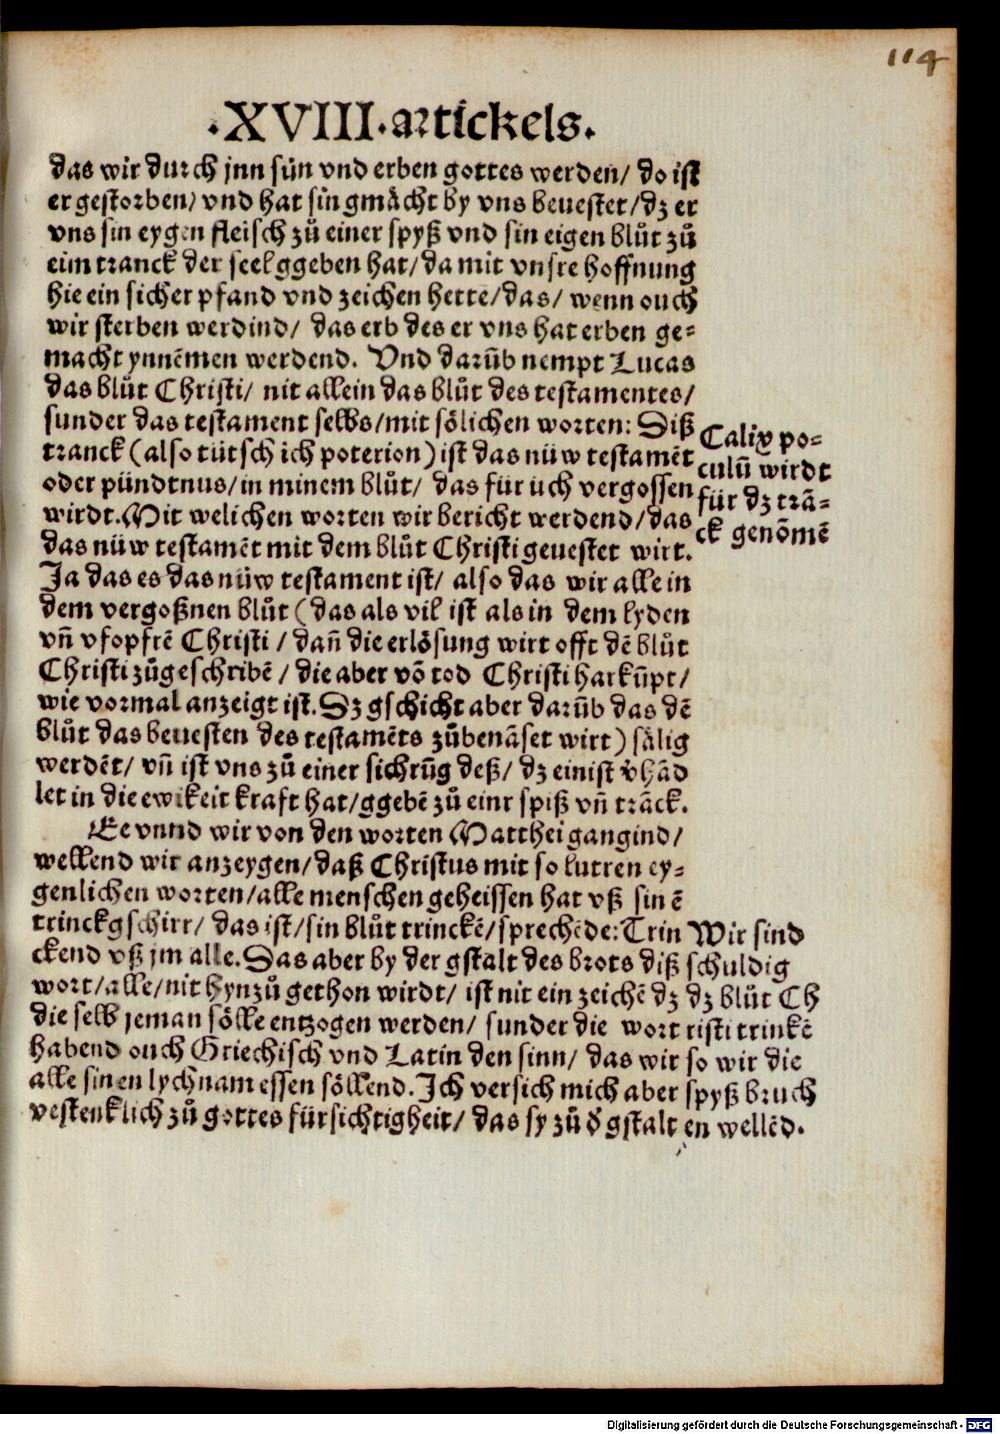 114
·XVIII·artickels.
das wir durch jnn sün vnd erben gottes werden/ do ist
er gestorben/ vnd hat sin gmächt by vns beuestet/ dz er
vns sin eygen fleisch zů einer spyß vnd sin eigen blůt zů
eim tranck der seel ggeben hat/ da mit vnsre hoffnung
hie ein sicher pfand vnd zeichen hette/ das/ wenn ouch
wir sterben werdind/ das erb des er vns hat erben ge⸗
macht ynnēmen werdend. Vnd darūb nempt Lucas
das blůt Christi/ nit allein das blůt des testamentes/
sunder das testament selbs/ mit sölichen worten: Diß
tranck (also tütsch ich poterion) ist das nüw testamēt
oder pündtnus/ in minem blůt/ das für üch vergossen
wirdt. Mit welichen worten wir bericht werdend/ das
das nüw testamēt mit dem blůt Christi geuestet wirt.
Ja das es das nüw testament ist/ also das wir alle in
dem vergoßnen blůt (das als vil ist als in dem lyden
vñ vfopfrē Christi/ dañ die erlösung wirt offt dē blůt
Christi zůgeschribē/ die aber vō tod Christi harkūpt/
wie vormal anzeigt ist. Dz gschicht aber darūb das dē
blůt das beuesten des testamēts zůbenāset wirt) sälig
werdēt/ vñ ist vns zů einer sichrūg deß/ dz einist v̄hād
let in die ewikeit kraft hat/ ggebē zů einr spiß vñ trāck.
Ee vnnd wir von den worten Matthei gangind/
wellend wir anzeygen/ daß Christus mit so lutren ey⸗
genlichen worten/ alle menschen geheissen hat vß sin ē
trinckgschirr/ das ist/ sin blůt trinckē/ sprechēde: Trin
ckend vß jm alle. Das aber by der gstalt des brots diß
wort/ alle/ nit hynzů gethon wirdt/ ist nit ein zeichē dz
die selb jeman sölle entzogen werden/ sunder die wort
habend ouch Griechisch vnd Latin den sinn/ das wir
alle sinen lychnam essen söllend. Ich versich mich aber
vestenklich zů gottes fürsichtigheit/ das sy zů d̓ gstalt
Calix po⸗
culū wirdt
für dz trā⸗
ck genōmē
Wir sind
schuldig
dz blůt Ch
risti trinkē
so wir die
spyß bruch
en wellēd.
Digitalisierung gefördert durch die Deutsche Forschungsgemeinschaft - DFG